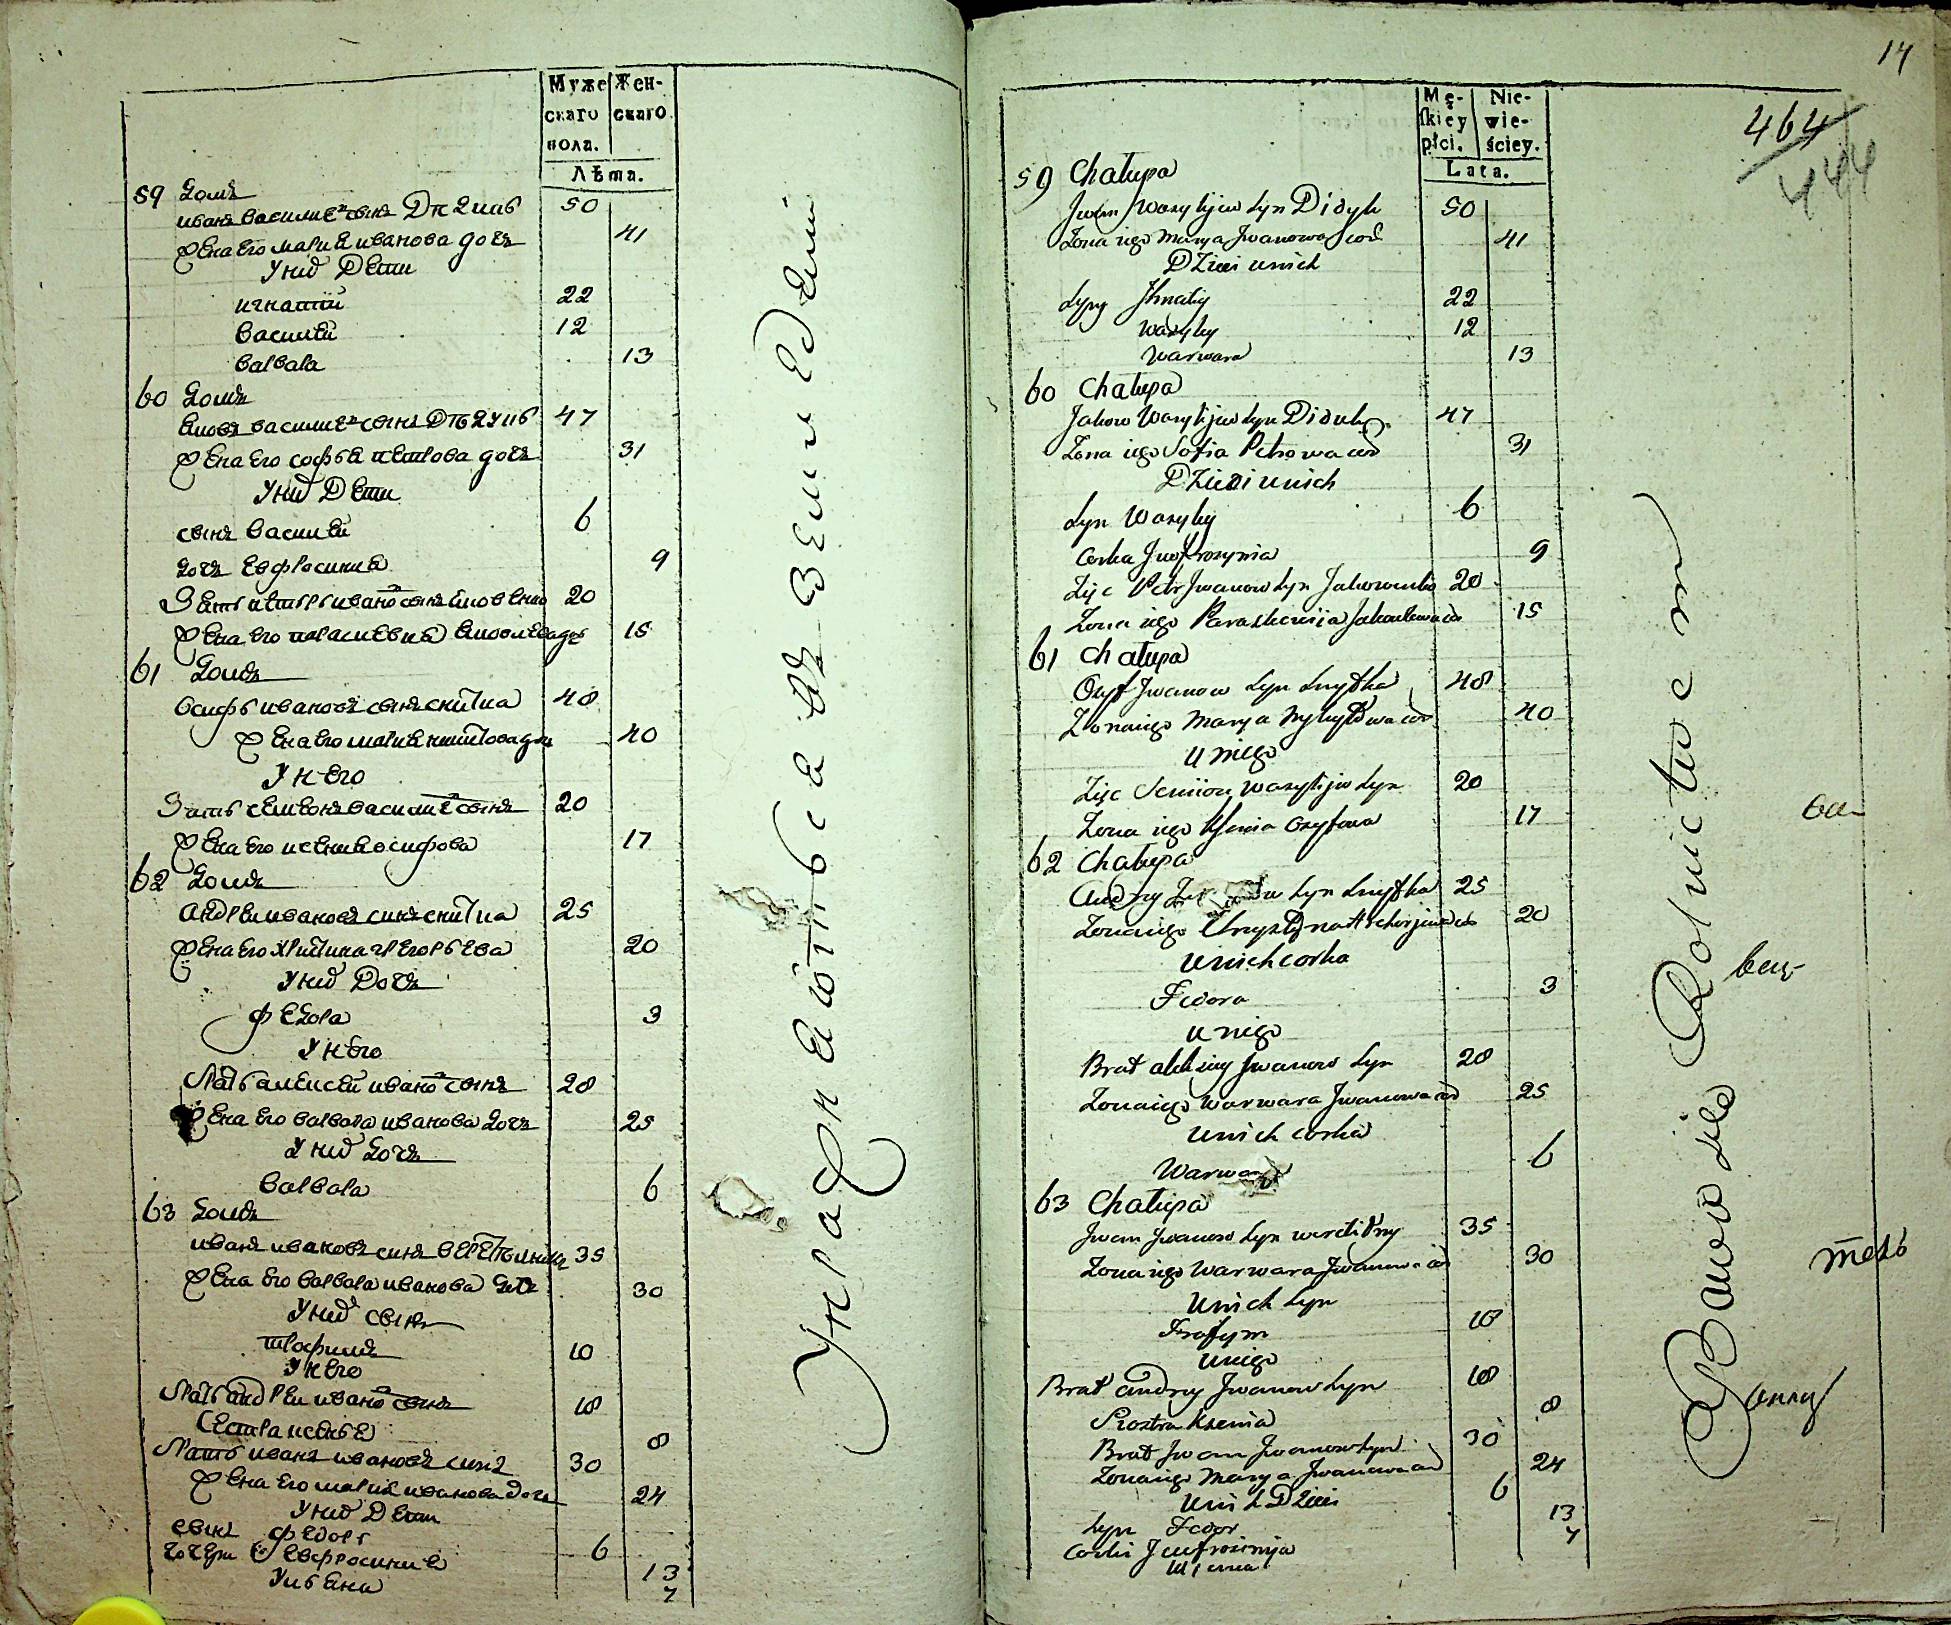 Муже
скаго
пола.
Жен-
скаго
Лѣта.
59 Домъ
иванъ василиевъ сынъ Дидикъ 50
Жена его мария иванова дочь 41
У них Дети
игнатий 22
василей 12
варвара 13
60 Домъ
яковъ василиевъ сынъ 47
Жена его софья петрова дочь 31
У них Дети
сынъ василей 6
дочь евфросиния 9
Зять петръ иванов сынъ 20
Жена его параскевия 15
61 Домъ
осифъ ивановъ сынъ снитка 48
Жена его мария 40
У него
Зять семионъ василиев сынъ 20
Жена его ксения осифова 17
62 Домъ
андрей ивановъ синъ снитка 25
Жена его христина григорьева 20
У них Дочь
федора 3
У него
братъ алексей иванов сынъ 28
Жена его варвара иванова дочь 25
У них дочь
варвара 6
63 Домъ
иванъ ивановъ синъ 35
Жена его варвара иванова дочь 30
У них сынъ
трофимъ 10
У него
братъ андрей иванов сынъ 18
сестра ксения 8
братъ иванъ ивановъ синъ 30
Жена его мария иванова дочь 24
У них Дети
сынъ федоръ 6
дочери евфросиния 13
улияна 7
Упражняются въ земледелии
14
464
444
Mę-
ſkiey
płci.
Nie-
wie-
ściey.
Lata.
59 Chałupa
Jwan Wasylijew syn Didyk 50
Zona iego Marya Jwanowa cor 41
Dzieci unich
syny Jhnatiy 22
Wasyly 12
Warwara 13
60 Chałupa
Jakow Wasylijew syn Diduk 47
Zona iego Sofia Petrowa cor 31
Dzieci unich
syn Wasyly 6
Corka Jewfrozynia 9
Zięc Petr Jwanow syn 20
Zona iego Paraskewija 15
61 Chałupa
Osyf Jwanow syn Snytka 48
Zona iego Marya 40
u niego
Zięc Semion Wasylijew syn 20
Zona iego Xenia Osyfowa 17
62 Chałupa
Andry syn Snytka 25
Zona iego Chrystyna 20
unich corka
Fedora 3
u niego
Brat Alexiey Jwanow syn 28
Zona iego Warwara Jwanowa cor 25
unich corka
Warwara 6
63 Chałupa
Jwan Jwanow syn 35
Zona iego Warwara Jwanowa cor 30
Unich syn
Trofym 10
uniego
Brat Andry Jwanow syn 18
Siostra Ksenia 8
Brat Jwan Jwanow syn 30
Zona iego Marya Jwanowa cor 24
Unich Dzieci
syn Fedor 6
Corki Jewfrozinija 13
7
Bawią się Rolnictwem